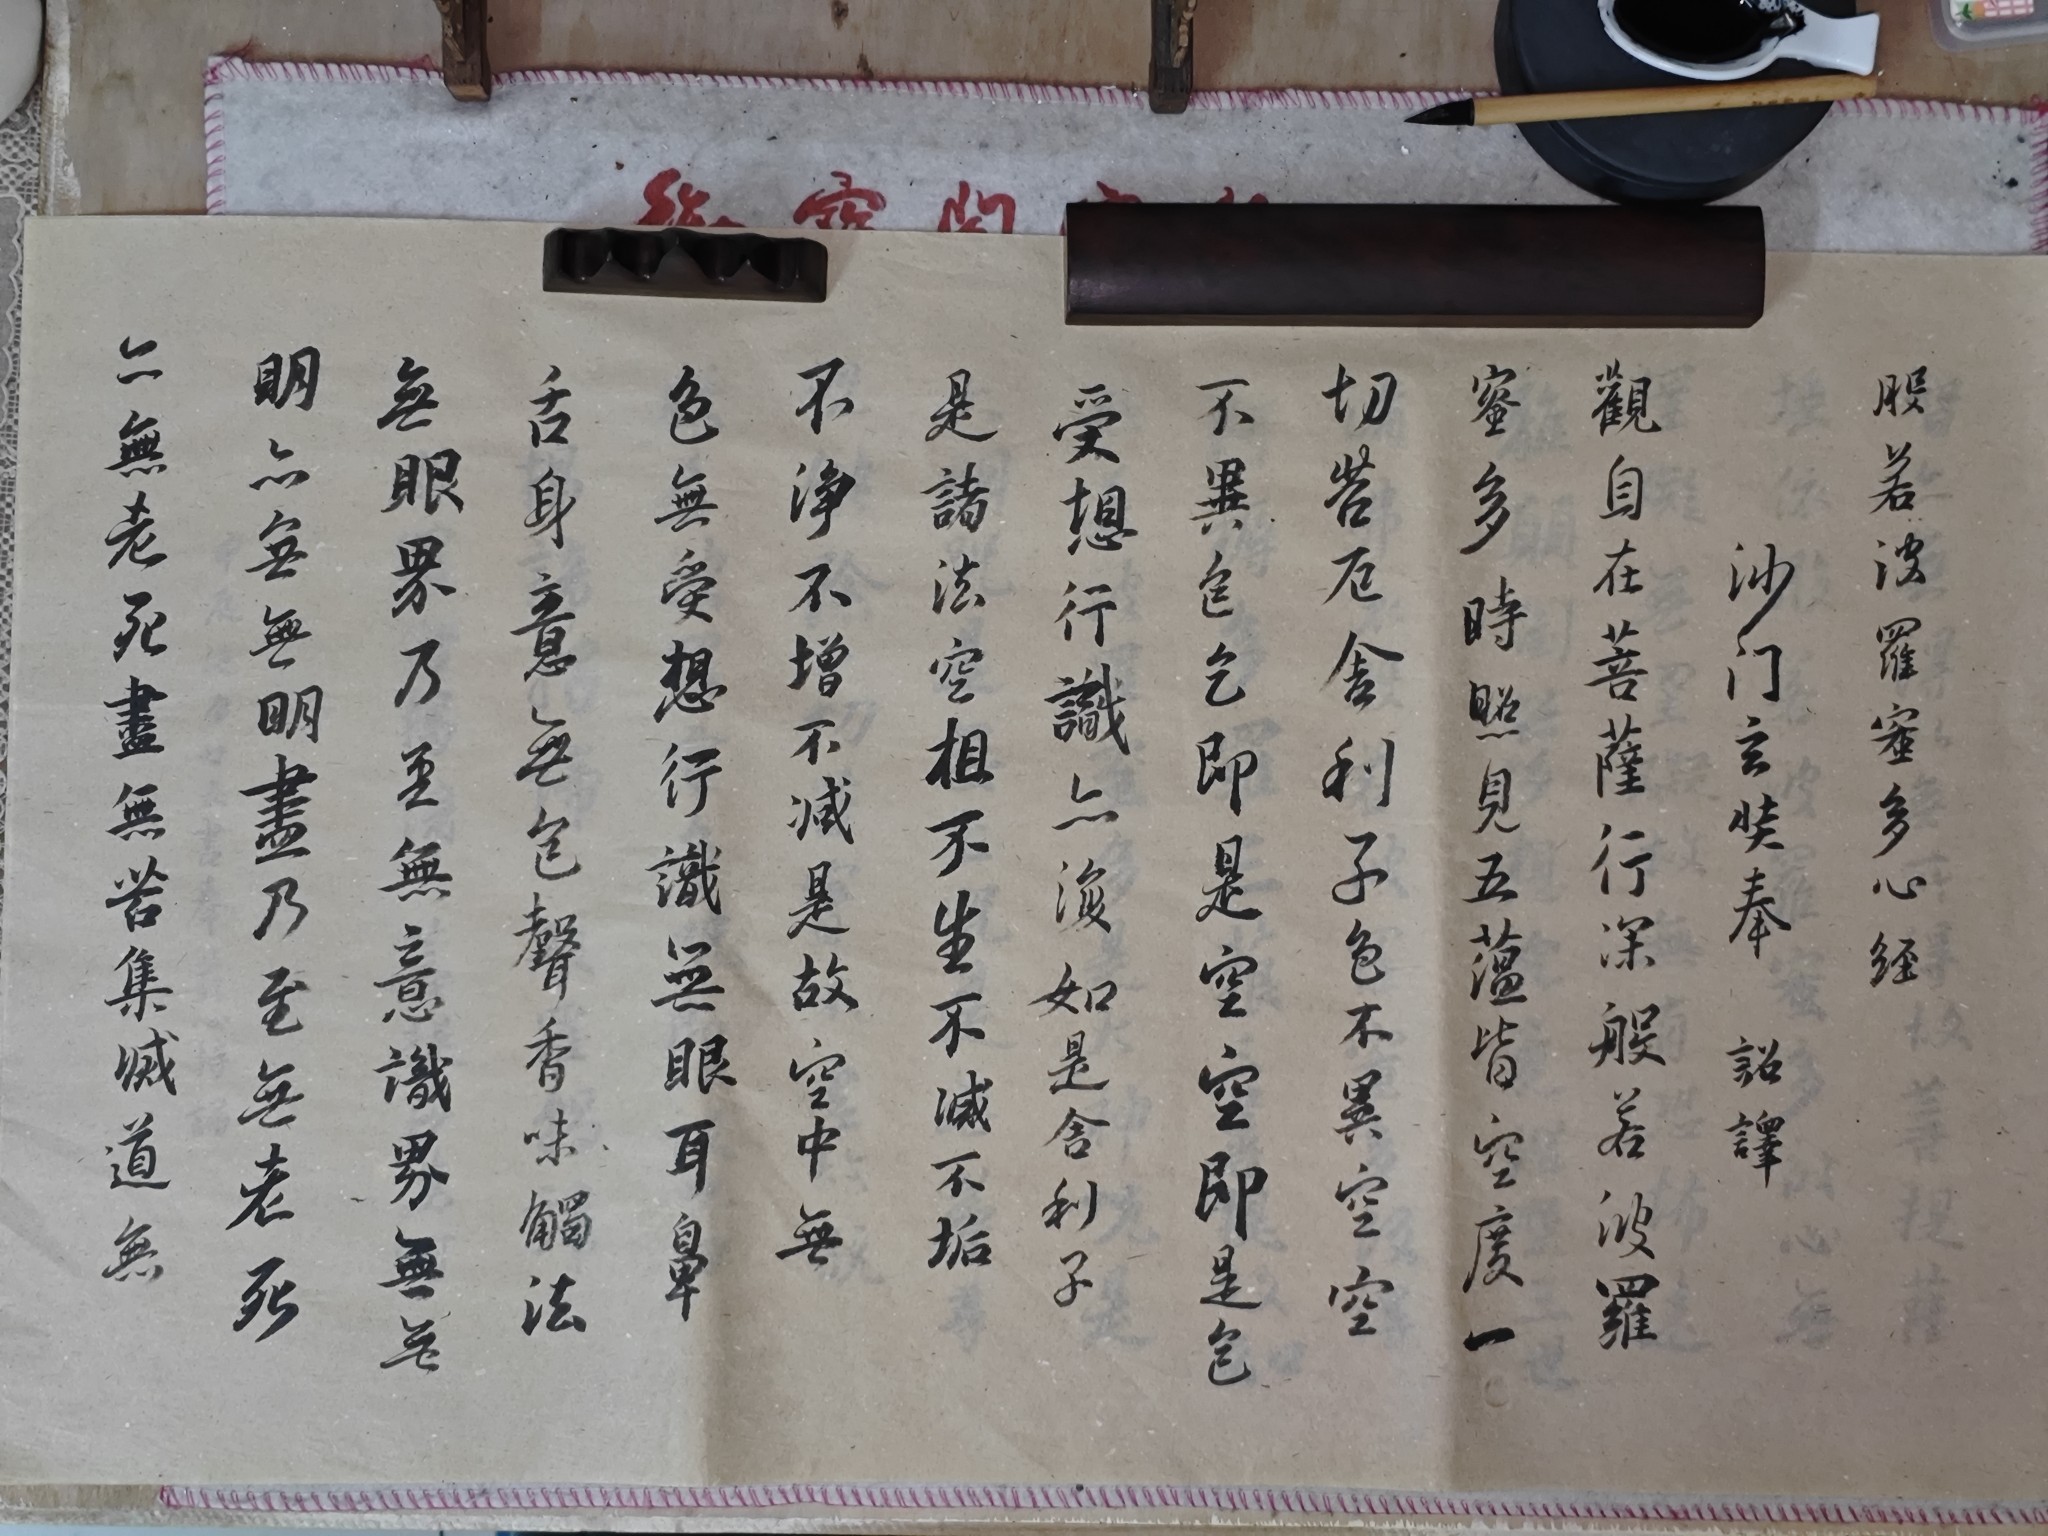 般若波羅蜜多心経
沙门玄奘奉 詔譯
觀自在菩薩行深般若波羅
蜜多時照見五蕴皆空度一
切苦厄舍利子色不異空空
不異色色即是空空即是色
受想行識亦復如是舍利子
是諸法空相不生不滅不垢
不浄不增不减是故空中無
色無受想行識無眼耳鼻
舌身意無色聲香味觸法
無眼界乃至無意識界無無
明亦無無明盡乃至無老死
亦無老死盡無苦集滅道無